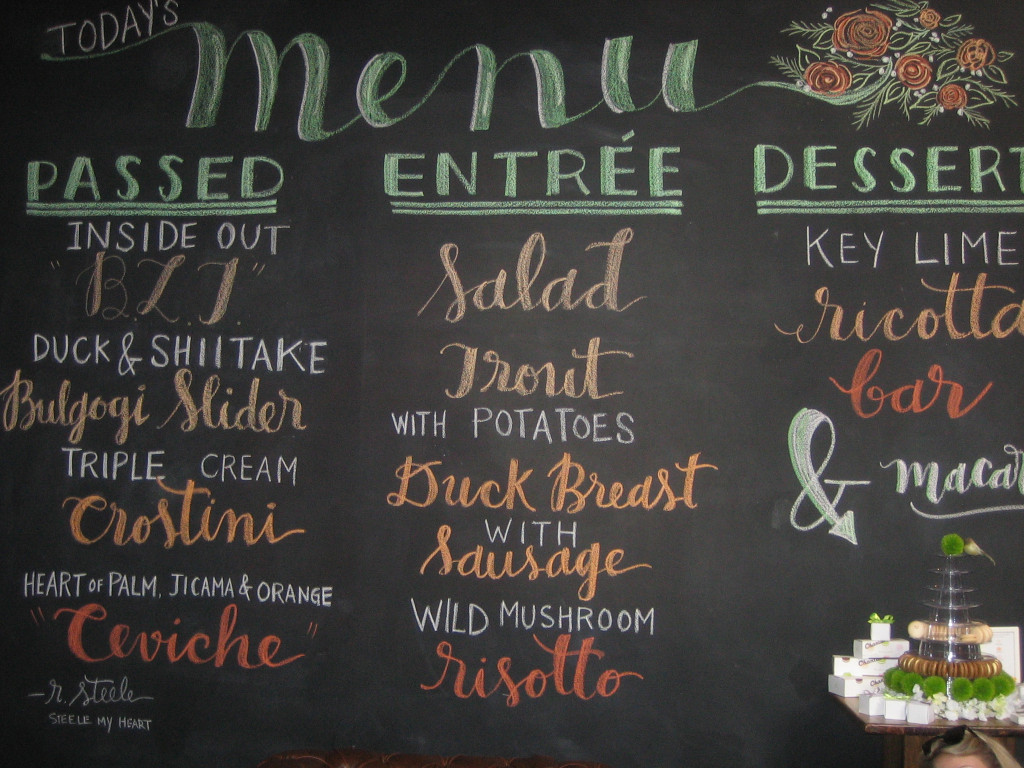 TODAY'S
menu
PASSED
INSIDE OUT
"B.L.T."
DUCK & SHIITAKE
Bulgogi Slider
TRIPLE CREAM
Crostini
HEART OF PALM, JICAMA & ORANGE
"Ceviche"
- r. steele
STEELE MY HEART
ENTRÉE
Salad
Trout
WITH POTATOES
Duck Breast
WITH
Sausage
WILD MUSHROOM
risotto
DESSERT
KEY LIME
ricotta
bar
& macar